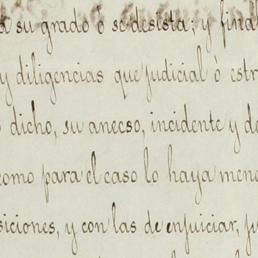 a su grado ó se desista; y final
y diligencias que judicial ó estr
dicho, su anecso, incidente y de
como para el caso lo haya mene
siciones, y con las de enjuiciar, ju